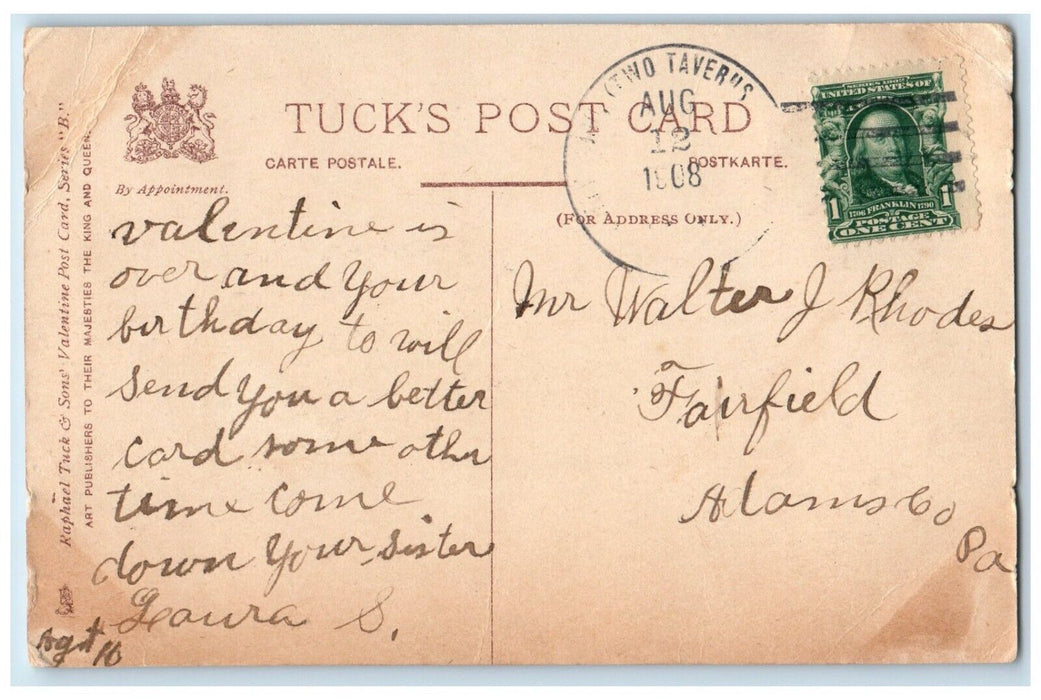 TUCK'S POST CARD
CARTE POSTALE.
POSTKARTE.
By Appointment.
(FOR ADDRESS ONLY.)
Raphael Tuck & Sons' Valentine Post Card, Series "B."
ART PUBLISHERS TO THEIR MAJESTIES THE KING AND QUEEN.
TWO TAVERNS
AUG
12
1908
SERIES 1902
UNITED STATES OF
1706 FRANKLIN 1790
1 1
POSTAGE
ONE CENT
valentine is
over and your
birthday to will
send you a better
card some other
time come
down your sister
Laura S.
Agt 10
Mr Walter J Rhodes
Fairfield
Adams Co
Pa